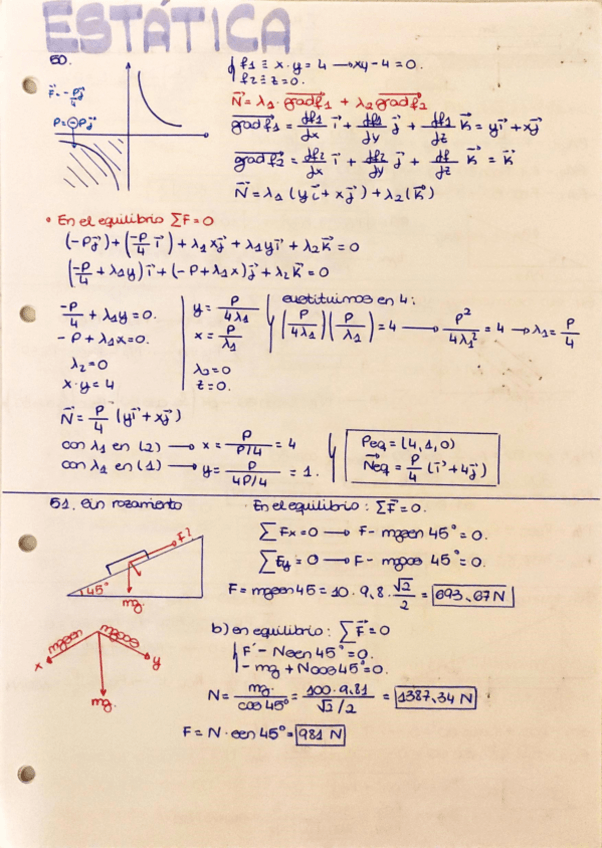 ESTÁTICA
50.
f1 ≡ x·y = 4 → xy - 4 = 0.
f2 ≡ z = 0.
F⃗ = -P/4 j⃗
P = -Pj⃗
N⃗ = λ1 · grad f1 + λ2 grad f2
grad f1 = df1/dx i⃗ + df1/dy j⃗ + df1/dz k⃗ = yi⃗ + xj⃗
grad f2 = df2/dx i⃗ + df2/dy j⃗ + df/dz k⃗ = k⃗
N⃗ = λ1 (yi⃗ + xj⃗) + λ2 (k⃗)
• En el equilibrio ΣF = 0
(-Pj⃗) + (-P/4 i⃗) + λ1xj⃗ + λ1yi⃗ + λ2k⃗ = 0
(-P/4 + λ1y) i⃗ + (-P + λ1x) j⃗ + λ2k⃗ = 0
-P/4 + λ1y = 0.
- P + λ1x = 0.
λ2 = 0
x·y = 4
y = P/4λ1
x = P/λ1
λ2 = 0
z = 0.
sustituimos en 4:
(P/4λ1)(P/λ1) = 4 → P²/4λ1² = 4 → λ1 = P/4
N⃗ = P/4 (yi⃗ + xj⃗)
con λ1 en (2) → x = P/P/4 = 4
con λ1 en (1) → y = P/4P/4 = 1.
Peq = (4, 1, 0)
N⃗eq = P/4 (i⃗ + 4j⃗)
51. Sin rozamiento
En el equilibrio: ΣF⃗ = 0.
ΣFx = 0 → F - mgsen 45° = 0.
ΣFy = 0 → F - mgcos 45° = 0.
F?
45°
mg.
F = mgsen45 = 10 · 9,8 · √2/2 = 693,67 N
mgsen
mgcos
x
y
mg.
b) en equilibrio: ΣF⃗ = 0
F - Nsen 45° = 0.
- mg + Ncos45° = 0.
N = mg./cos45° = 100·9,81/√2/2 = 1387,34 N
F = N · sen 45° = 981 N